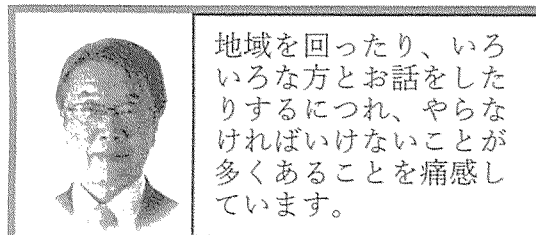 地域を回ったり、いろ
いろな方とお話をした
りするにつれ、やらな
ければいけないことが
多くあることを痛感し
ています。